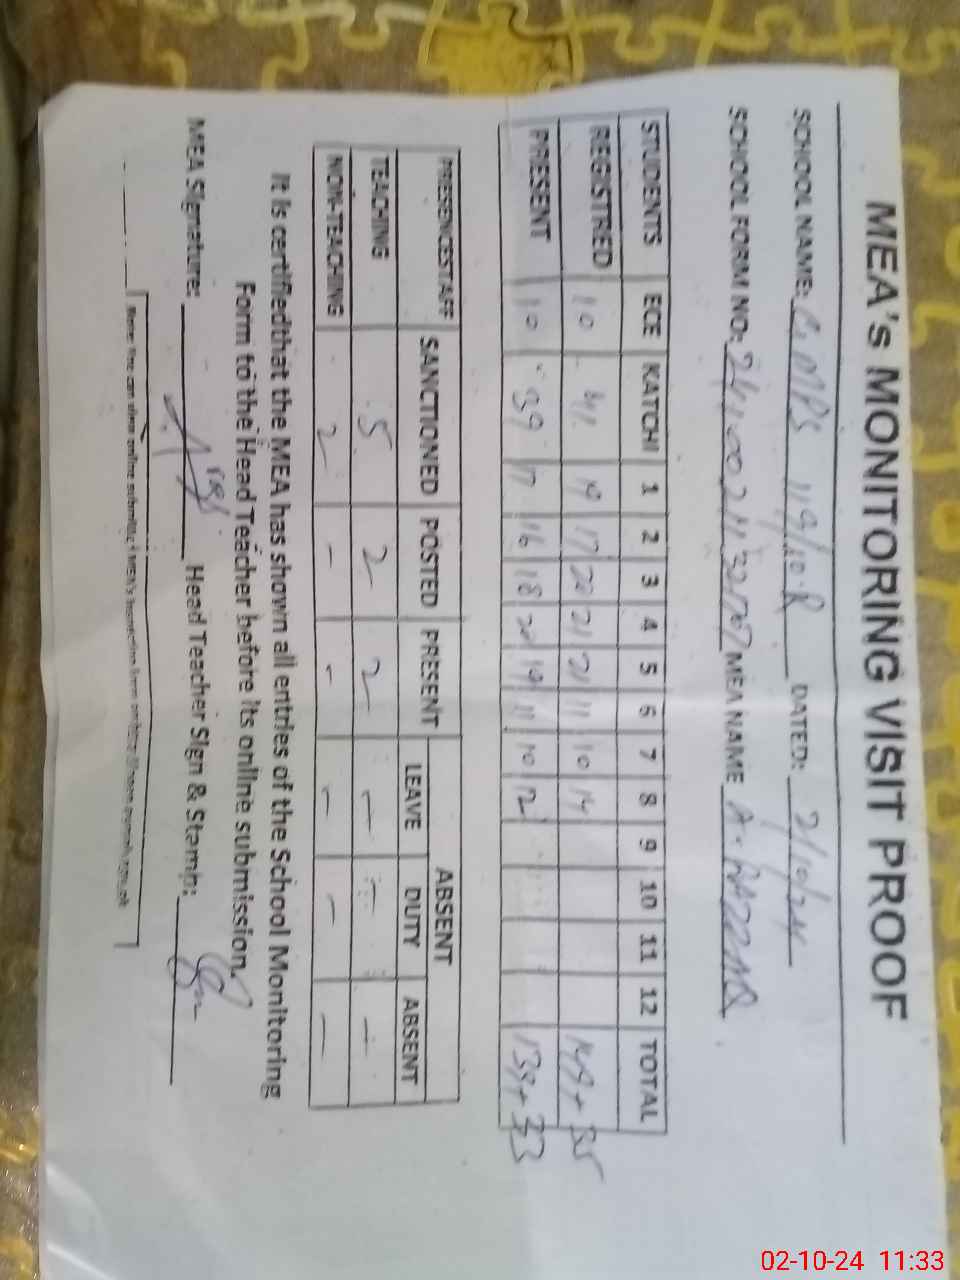 MEA's MONITORING VISIT PROOF
SCHOOL NAME: G. MPS 119/10.R DATED: 2/10/24
SCHOOL FORM NO: MEA NAME A. RAZZAQ
STUDENTS ECE KATCHI 1 2 3 4 5 6 7 8 9 10 11 12 TOTAL
REGISTRED 10 41 19 17 20 21 21 11 10 14 149+35
PRESENT 10 39 17 16 18 20 19 11 10 12 139+33
PRESENCESTAFF SANCTIONED POSTED PRESENT ABSENT
LEAVE DUTY ABSENT
TEACHING 5 2 2 - - -
NON-TEACHING 2 - - - - -
It is certifiedthat the MEA has shown all entries of the School Monitoring
Form to the Head Teacher before its online submission.
MEA Signature: Head Teacher Sign & Stamp:
02-10-24 11:33